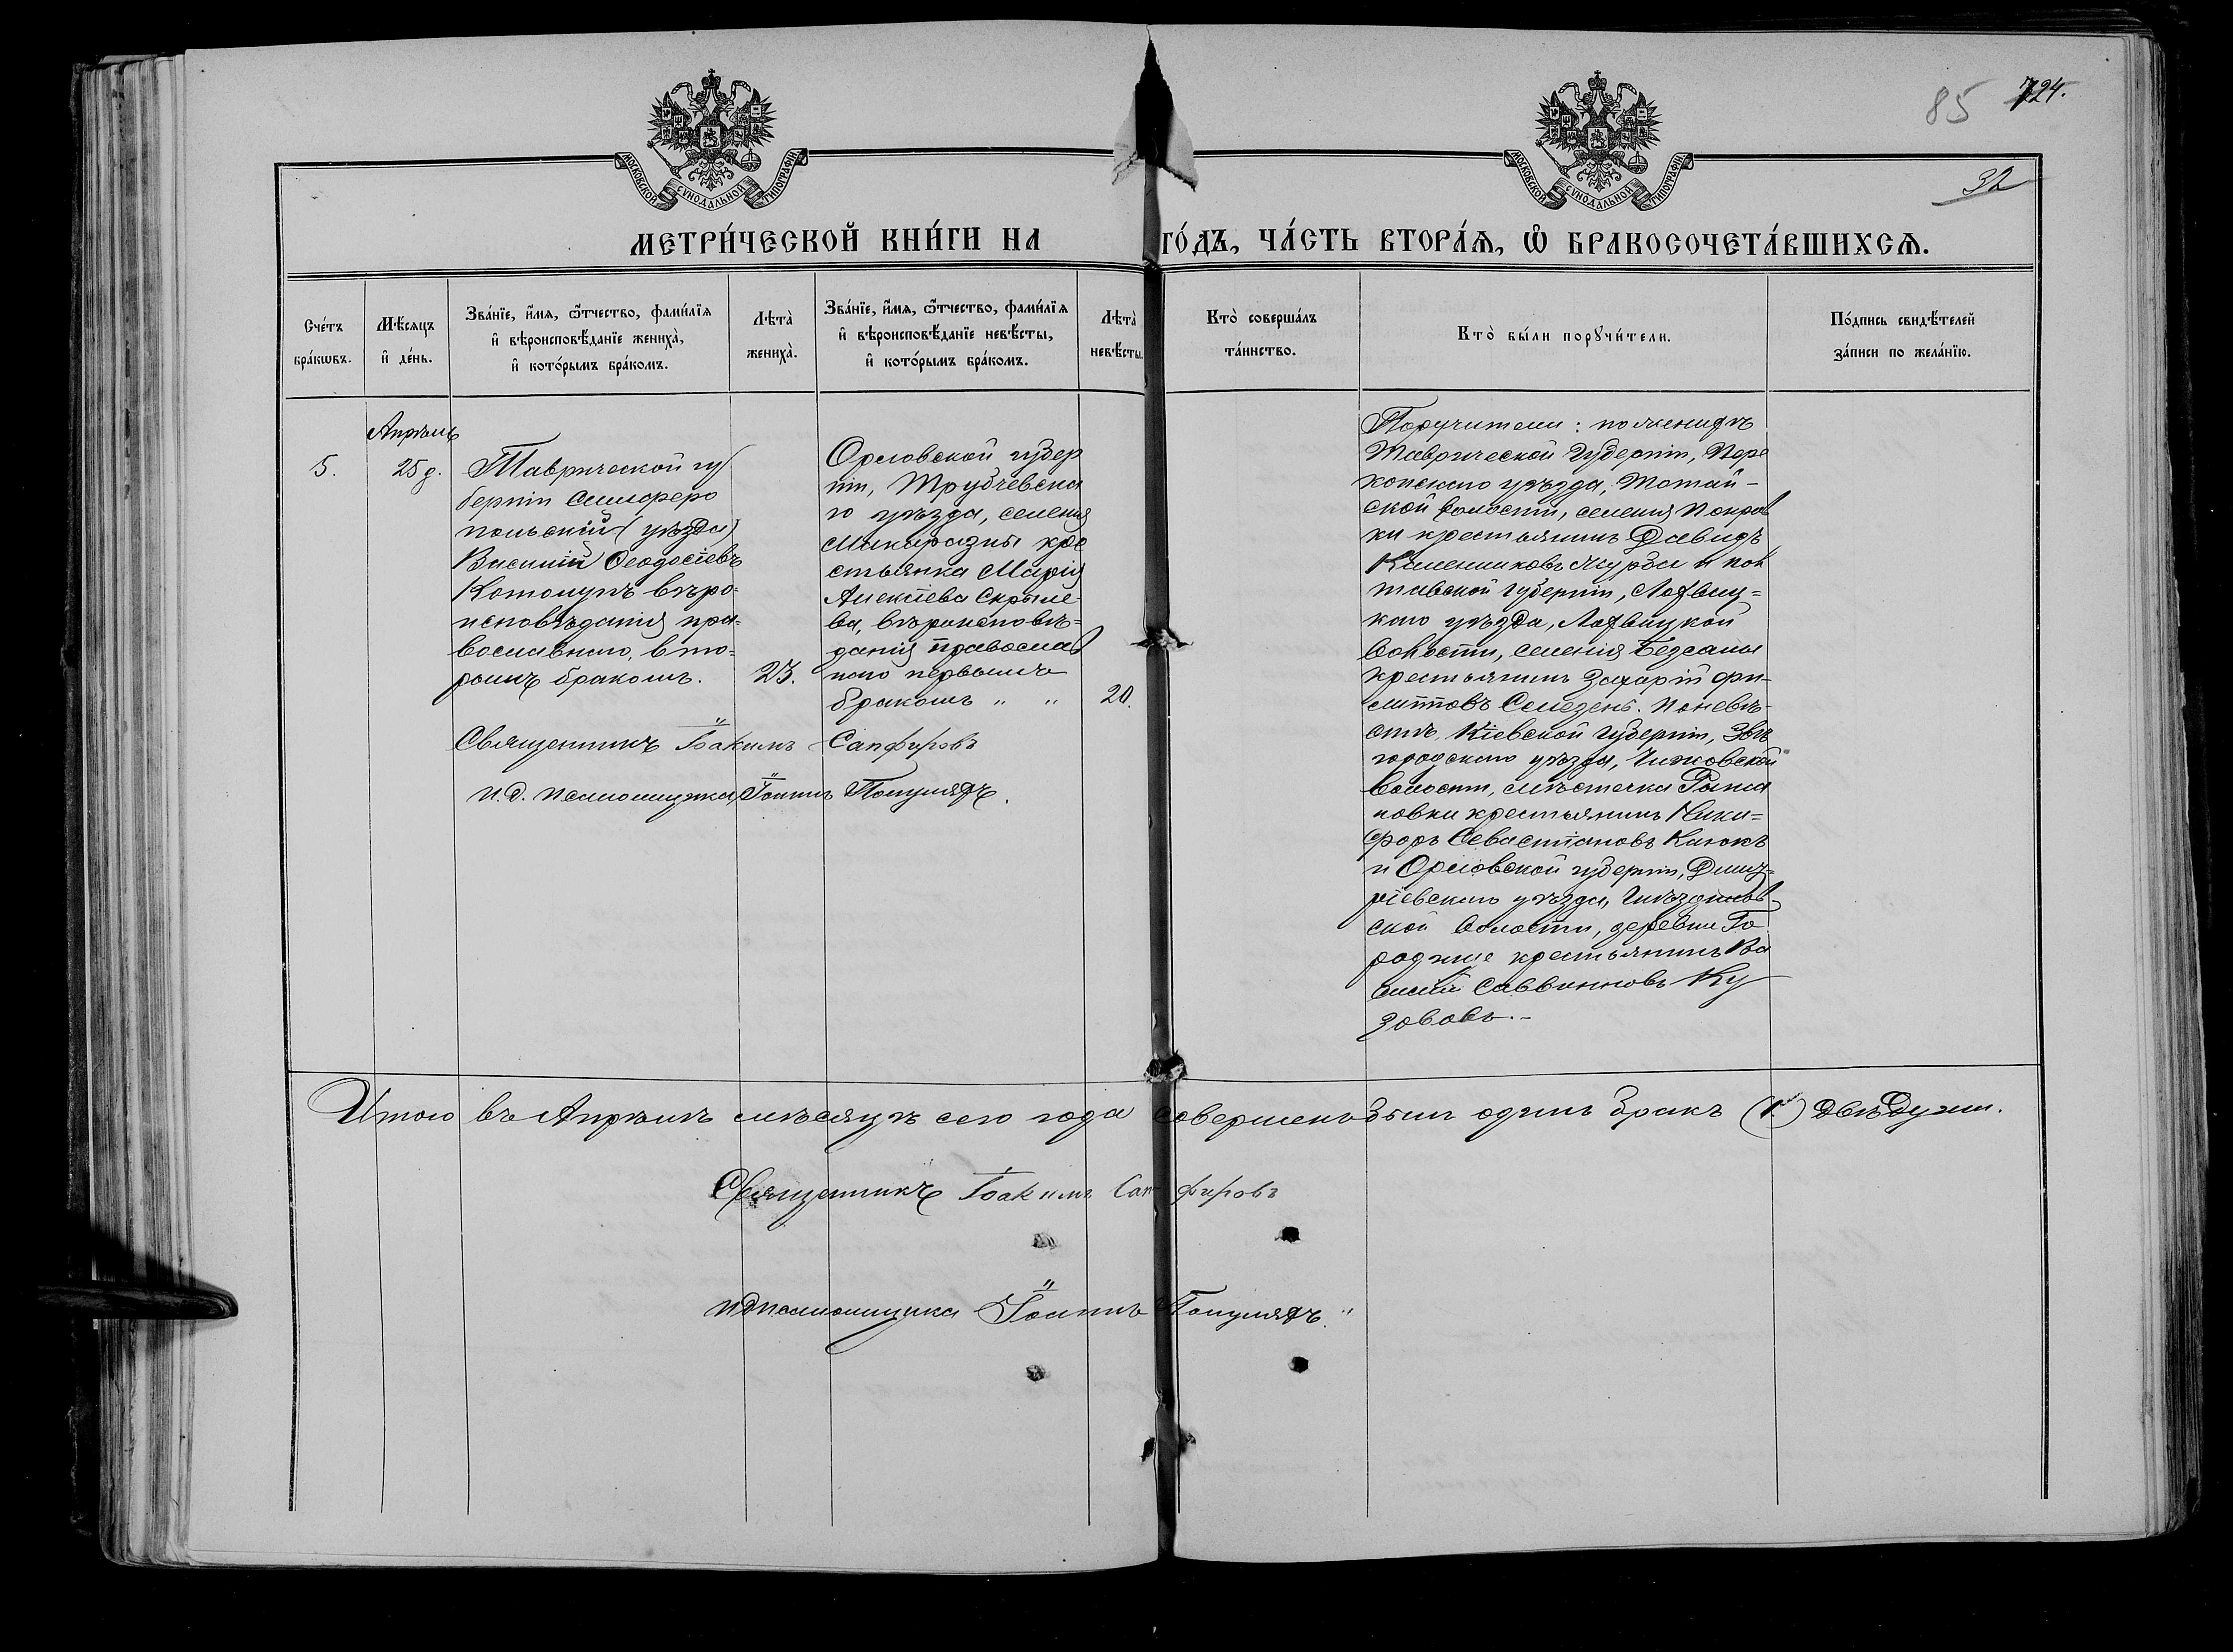 85 724.
32
МОСКОВСКОЙ СУНОДАЛЬНОЙ ТИПОГРАФІИ
МОСКОВСКОЙ СУНОДАЛЬНОЙ ТИПОГРАФІИ
МЕТРИ́ЧЕСКОЙ КНИ́ГИ НА ГО́ДЪ, ЧА́СТЬ ВТОРА́Ѧ, Ѡ҆ БРАКОСОЧЕТА́ВШИХСѦ.
Сче́тъ
бра́кѡвъ.
Мѣ́сѧцъ
и҆ де́нь.
Зва́нїе, и҆́мѧ, ѻ҆́тчество, фами́лїѧ
и҆ вѣроисповѣ́данїе жениха̀,
и҆ кото́рымъ бра́комъ.
Лѣта̀
жениха̀.
Зва́нїе, и҆́мѧ, ѻ҆́тчество, фами́лїѧ
и҆ вѣроисповѣ́данїе невѣ́сты,
и҆ кото́рымъ бра́комъ.
Лѣта̀
невѣ́сты.
Кто̀ соверша́лъ
та́инство.
Кто̀ бы́ли порꙋчи́тели.
По́дпись свидѣ́телей
за́писи по жела́нїю.
Апрѣль
5.
25 д.
Таврической гу
берніи Симферо
польскій (уѣзда)
Василій Ѳеодосіевъ
Котолупъ вѣро-
исповѣданія пра-
вославнаго, вто-
рымъ бракомъ.
23.
Орловской губер
ніи, Трубчевска
го уѣзда, селенія
кре
стьянка Марія
Алексѣева Скрыле-
ва, вѣроисповѣ-
данія православ
наго первымъ
бракомъ " "
20.
Священникъ Іоакимъ Сапфировъ
И. д. псаломщика Іоаннъ
Поручители: по женихѣ
Таврической губерніи, Пере
копскаго уѣзда, Тотай-
ской волости, селенія Покров
ки крестьянинъ Давидъ
и пол
тавской губерніи, Лохвиц-
каго уѣзда, Лохвицкой
волости, селенія Безсалы
крестьянинъ Захарій Фи-
липповъ Селезень. По невѣ-
стѣ, Кіевской губерніи, Звѣ
городскаго уѣзда, Чижовской
волости, мѣстечка Рыжа
новки крестьянинъ Ники-
форъ Севастіановъ Клюкъ
и Орловской губерніи, Дмит-
ріевскаго уѣзда,
ской волости, деревни Го
родище крестьянинъ Ва
силій Саввиновъ Ку
зововъ.-
Итого въ Апрѣлѣ мѣсяцѣ сего года совершенъ былъ одинъ бракъ (1) двѣ души.
Священникъ Іоакимъ Сапфировъ
И д псаломщика Іоаннъ